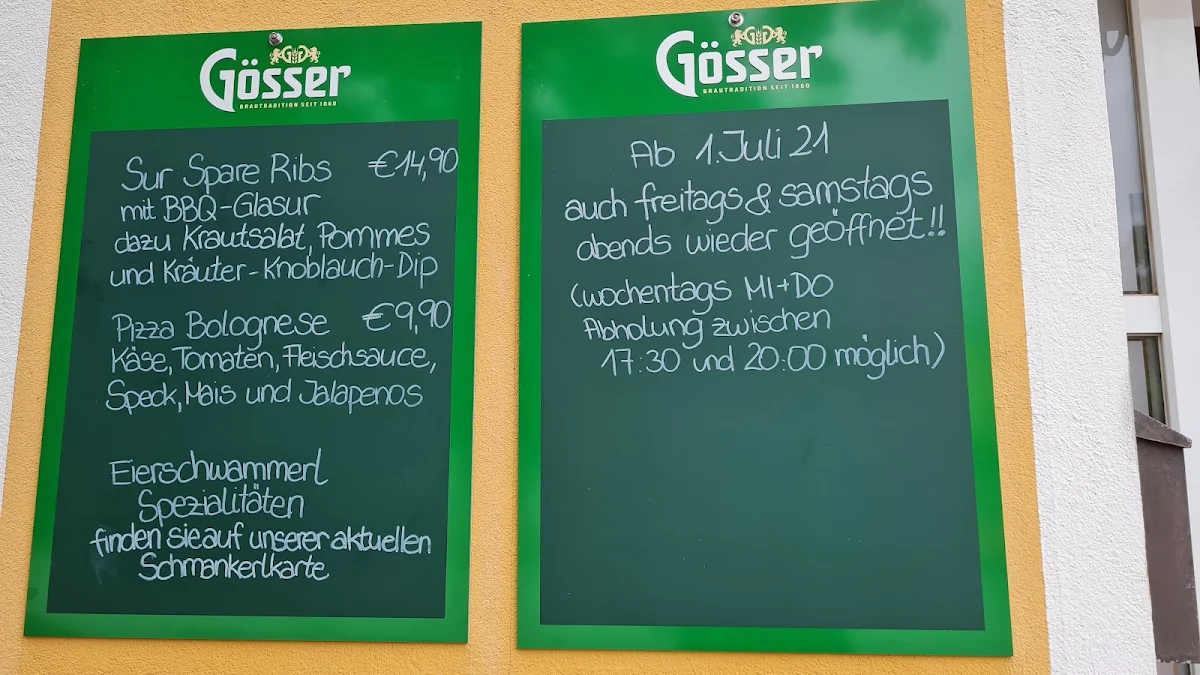 Gösser
BRAUTRADITION SEIT 1860
Sur Spare Ribs €14,90
mit BBQ-Glasur
dazu Krautsalat, Pommes
und Kräuter-Knoblauch-Dip
Pizza Bolognese €9,90
Käse, Tomaten, Fleischsauce,
Speck, Mais und Jalapenos
Eierschwammerl
Spezialitäten
finden sie auf unserer aktuellen
Schmankerlkarte
Gösser
BRAUTRADITION SEIT 1860
Ab 1. Juli 21
auch freitags & samstags
abends wieder geöffnet!!
(wochentags MI+DO
Abholung zwischen
17:30 und 20:00 möglich)